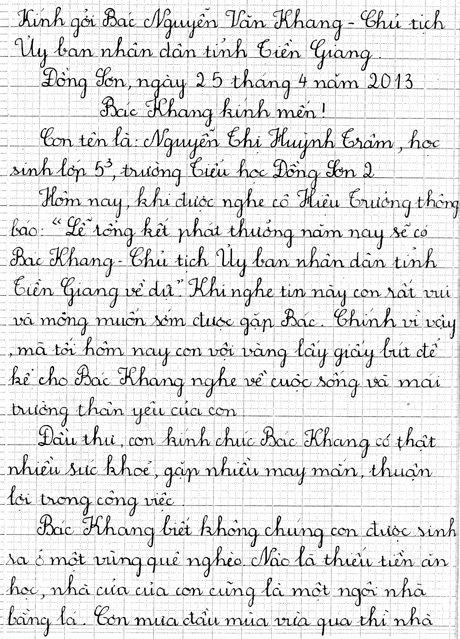 Kính gởi Bác Nguyễn Văn Khang - Chủ tịch
Ủy ban nhân dân tỉnh Tiền Giang.
Đồng Sơn, ngày 25 tháng 4 năm 2013
Bác Khang kính mến!
Con tên là: Nguyễn Thị Huỳnh Trâm, học
sinh lớp 5³, trường Tiểu học Đồng Sơn 2
Hôm nay, khi được nghe cô Hiệu Trưởng thông
báo: "Lễ tổng kết phát thưởng năm nay sẽ có
Bác Khang - Chủ tịch Ủy ban nhân dân tỉnh
Tiền Giang về dự". Khi nghe tin này con rất vui
và mong muốn sớm được gặp Bác. Chính vì vậy
, mà tối hôm nay con vội vàng lấy giấy bút để
kể cho Bác Khang nghe về cuộc sống và mái
trường thân yêu của con
Đầu thư, con kính chúc Bác Khang có thật
nhiều sức khoẻ, gặp nhiều may mắn, thuận
lợi trong công việc
Bác Khang biết không chúng con được sinh
ra ở một vùng quê nghèo. Nào là thiếu tiền ăn
học, nhà cửa của con cũng là một ngôi nhà
bằng lá. Cơn mưa đầu mùa vừa qua thì nhà